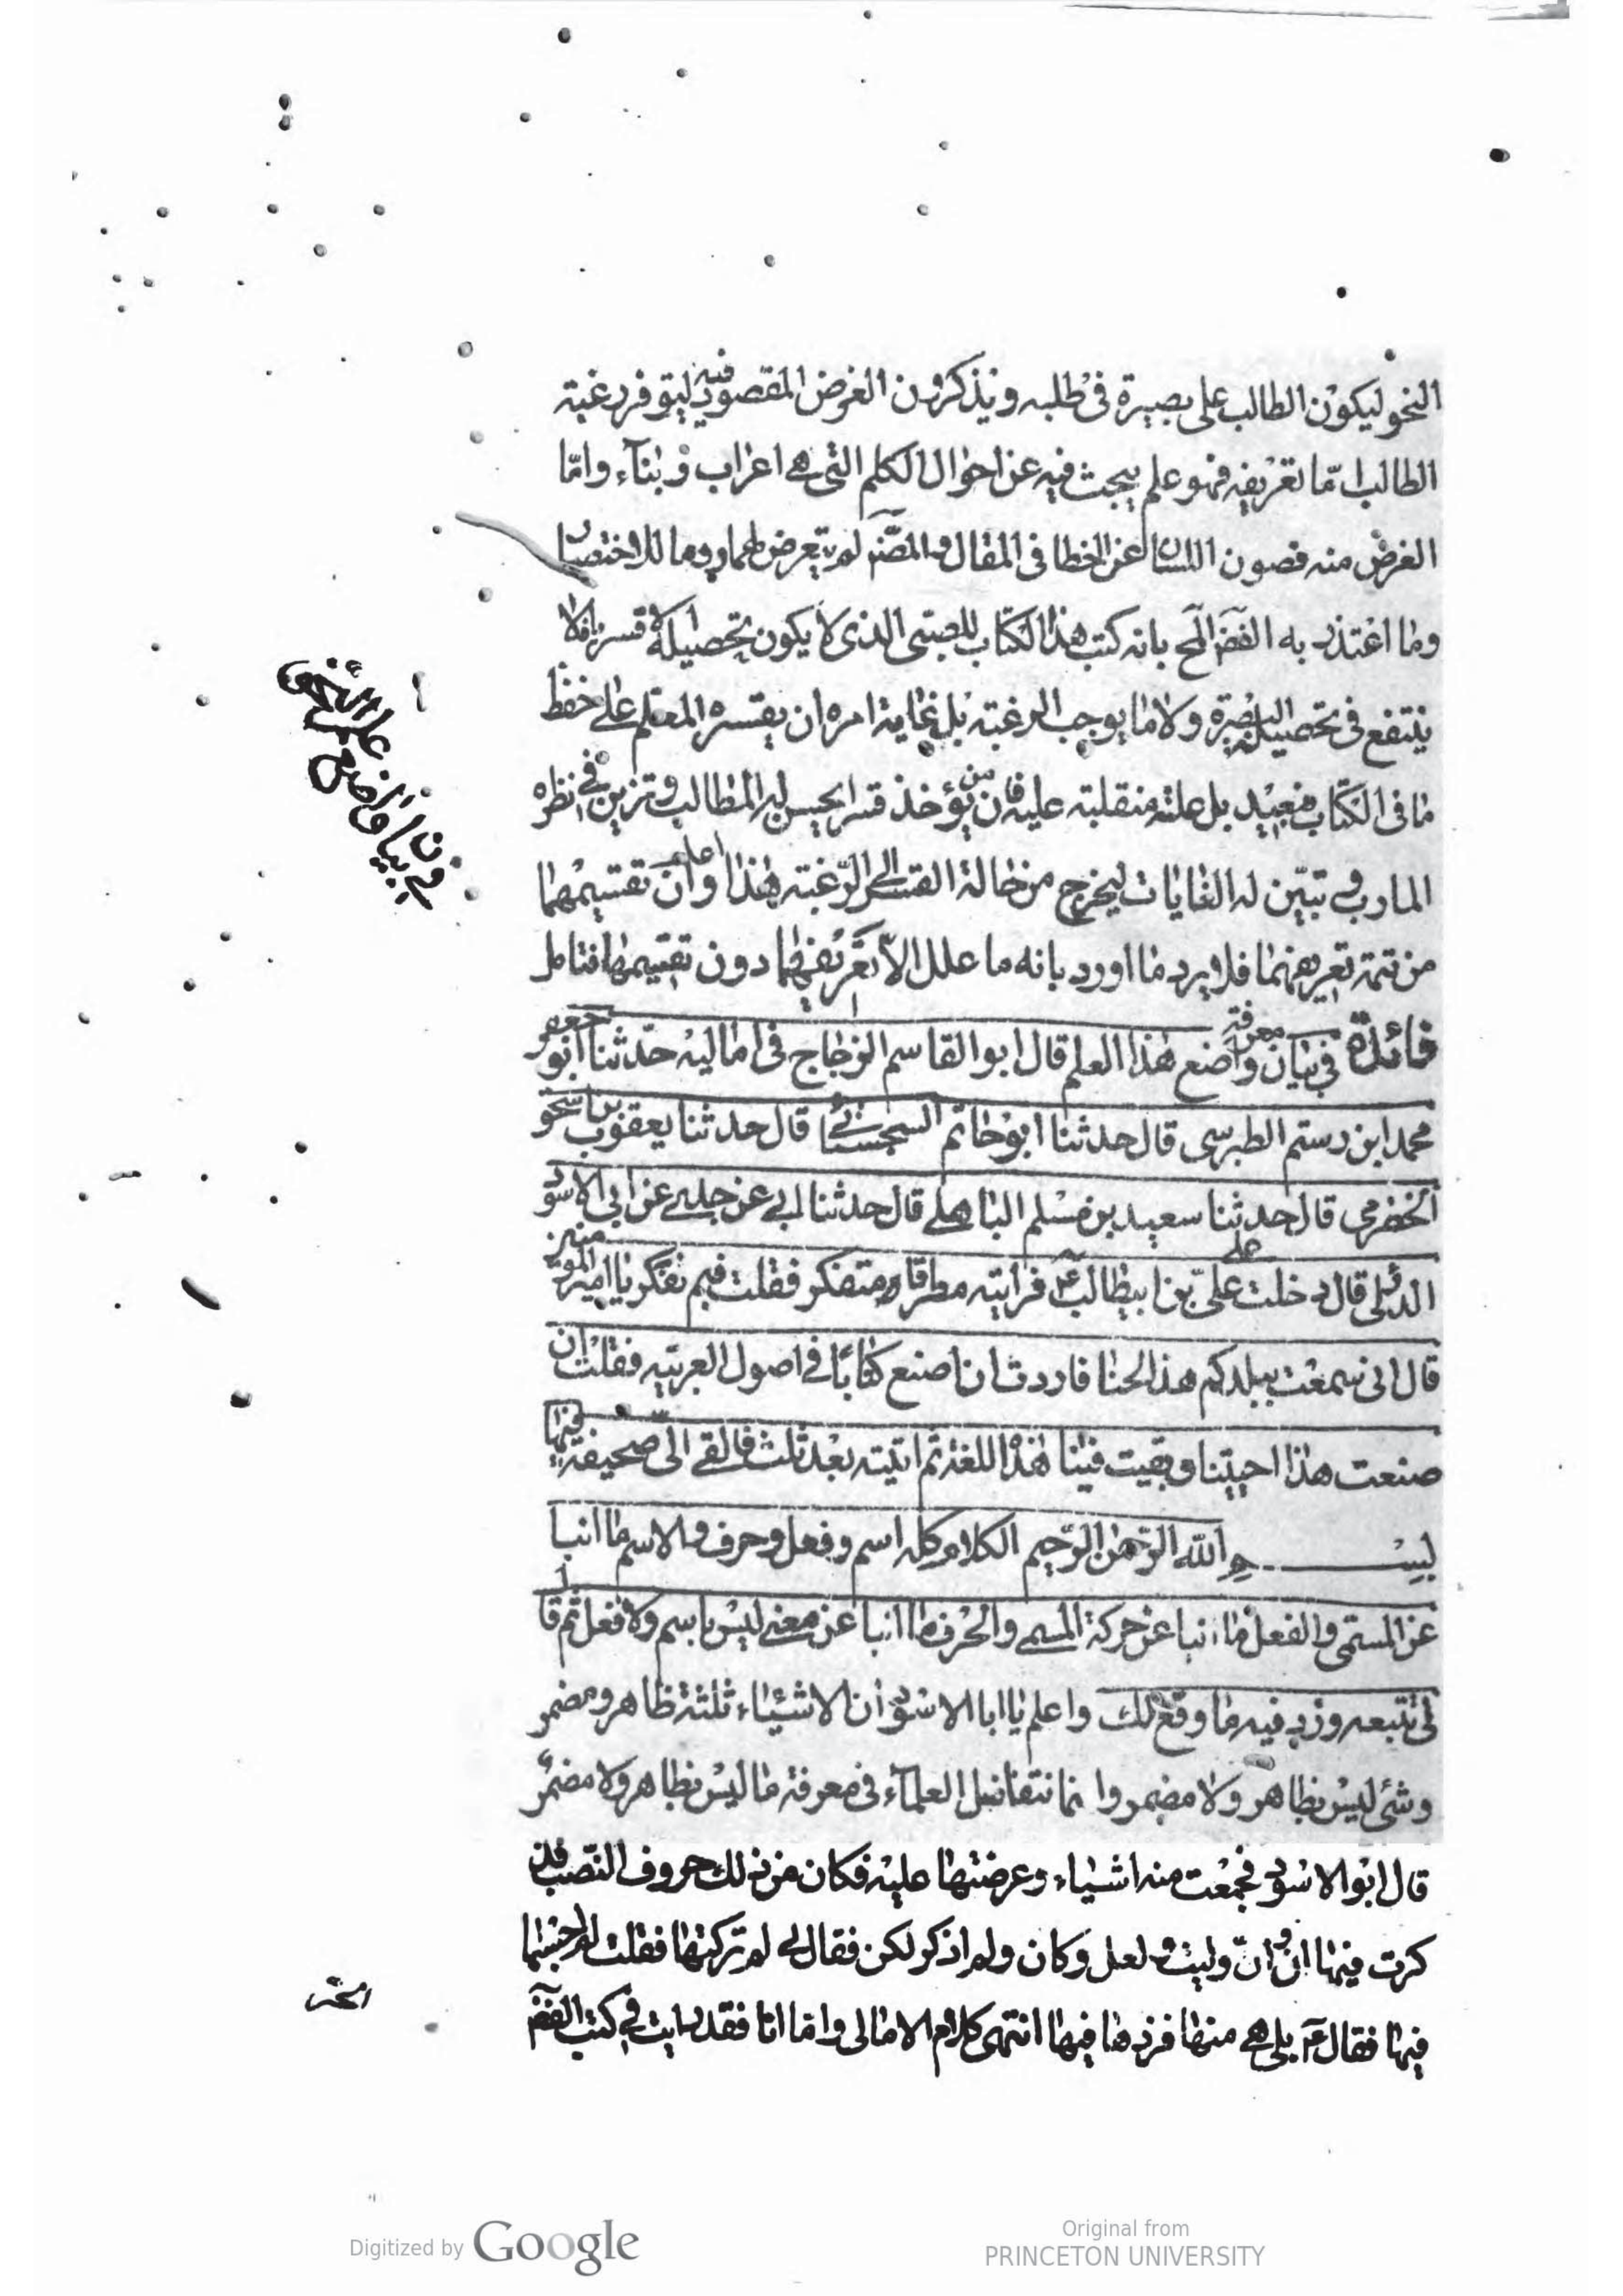 النحو ليكون الطالب على بصيرة في طلبه ويذكرون الغرض المقصود فيه ليتوفر رغبة
الطالب امّا تعريفه فهو علم يبحث فيه عن احوال الكلم التي هي اعراب وبناء، وامّا
الغرض منه فصون اللسان عن الخطا في المقال والمصنف لم يتعرض لهما روما للاختصار
وما اعتذر به الفضّ المح بانه كتب هذا الكتاب للصبي الذي لا يكون تحصيله الا قسريا فلا
ينتفع في تحصيله البصيرة ولا ما يوجب الرغبة بل غاية امره ان يقسره المعلم على حفظ
ما في الكتاب فبعيد بل علته منقلبة عليه فان من يؤخذ قسرا يحسن له المطالب وتزين في نظره
المارب وتبيّن له الغايات ليخرج من حالة القسر الى الرّغبة هذا واعلم ان تقسيمهما
من تتمة تعريفهما فلا يرد ما اورد بانه ما علل الا تعريفهما دون تقسيمهما فتامل
فائدة في بيان معرفة واضع هذا العلم قال ابو القاسم الزجاج في اماليه حدّثنا ابو جعفر
محمد ابن رستم الطبرسى قال حدثنا ابو حاتم السجستاني قال حدثنا يعقوب بن اسحق
الخضرمي قال حدثنا سعيد بن مسلم الباهلي قال حدثنا ابي عن جدي عن ابي الاسود
الدئلي قال دخلت على عليّ بن ابيطالب ع فرأيته مطرقا متفكر فقلت فيم تفكر يا امير المؤمنين
قال اني سمعت ببلدكم هذا لحنا فاردت ان اصنع كتابًا في اصول العربيّه فقلت ان
صنعت هذا احييتنا وبقيت فينا هذا اللغة ثم اتيته بعد ثلث فالقى الىّ صحيفة فيها
بسم الله الرّحمن الرّحيم الكلام كله اسم وفعل وحرف والاسم ما انبا
عن المسمّى والفعل ما انبا عن حركة المسمى والحرف ما انبا عن معنى ليس باسم ولا فعل ثم قال
لي تتبعه وزد فيه ما وقع لك واعلم يا ابا الاسود ان الاشياء ثلثة ظاهر ومضمر
وشئ ليس بظاهر ولا مضمر وانما تتفاضل العلماء في معرفة ما ليس بظاهر ولا مضمر
قال ابو الاسود فجمعت منه اشياء، وعرضتها عليه فكان من ذلك حروف النّصب فذ
كرت فيها ان وانّ وليت ولعل وكان ولم اذكر لكن فقال لي لم تركتها فقلت لم احسبها
فيها فقال ع بلى هي منها فزدها فيها انتهى كلام الامالى واما انا فقد رايت في كتب الفضّ
فائدة
في بيان واضع
علم النحو